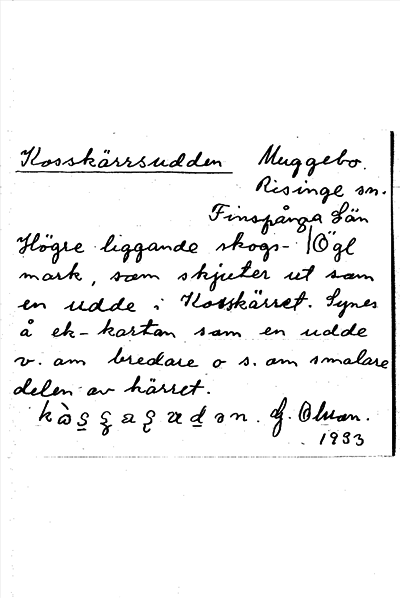 Kosskärrsudden Muggebo.
Risinge sn.
Finspånga Län
Högre liggande skogs- Ögl
mark, som skjuter ut som
en udde i Kosskärret. Synes
å ek-kartan som en udde
v. om bredare o s. om smalare
delen av kärret.
G. Olson.
1933